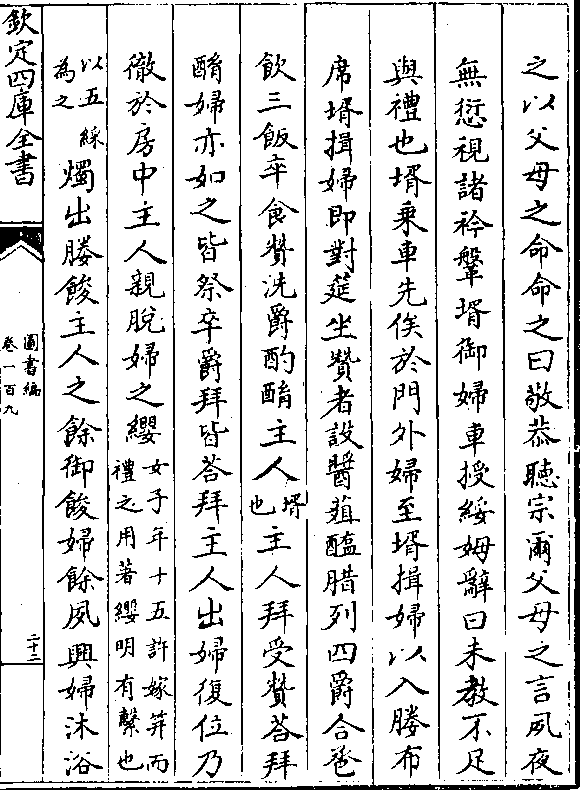 之以父母之命命之曰敬恭聽宗爾父母之言夙夜
無愆視諸衿鞶壻御婦車授綏姆辭曰未教不足
與禮也壻乗車先俟於門外婦至壻揖婦以入媵布
席壻揖婦即對筵坐贊者設醬菹醢腊列四爵合卺
飲三飯卒食贊洗爵酌酳主人壻也主人拜受贊荅拜
酳婦亦如之皆祭卒爵拜皆荅拜主人出婦復位乃
徹於房中主人親脫婦之纓女子年十五許嫁筓而禮之用著纓明有繫也
以五綵為之燭出媵餕主人之餘御餕婦餘夙興婦沐浴
欽定四庫全書
圖書編
卷一百九
二十三